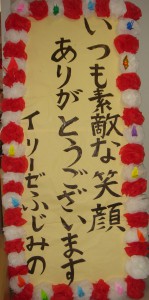 いつも素敵な笑顔
ありがとうございます
イリーゼふじみの